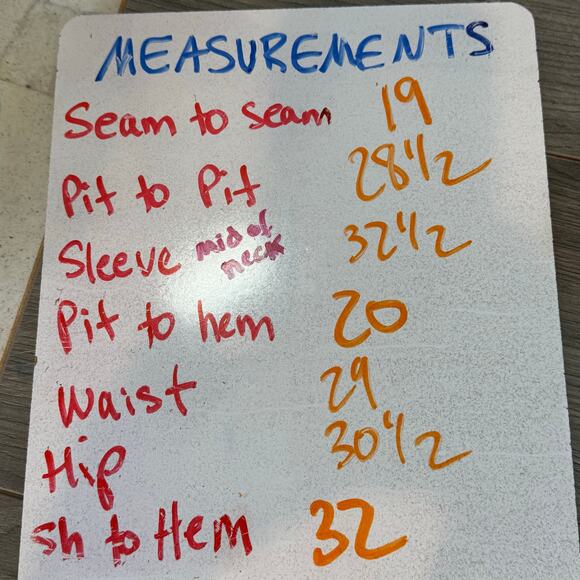 MEASUREMENTS
Seam to seam 19
Pit to Pit 28 1/2
Sleeve mid of neck 32 1/2
Pit to hem 20
Waist 29
Hip 30 1/2
sh to Hem 32